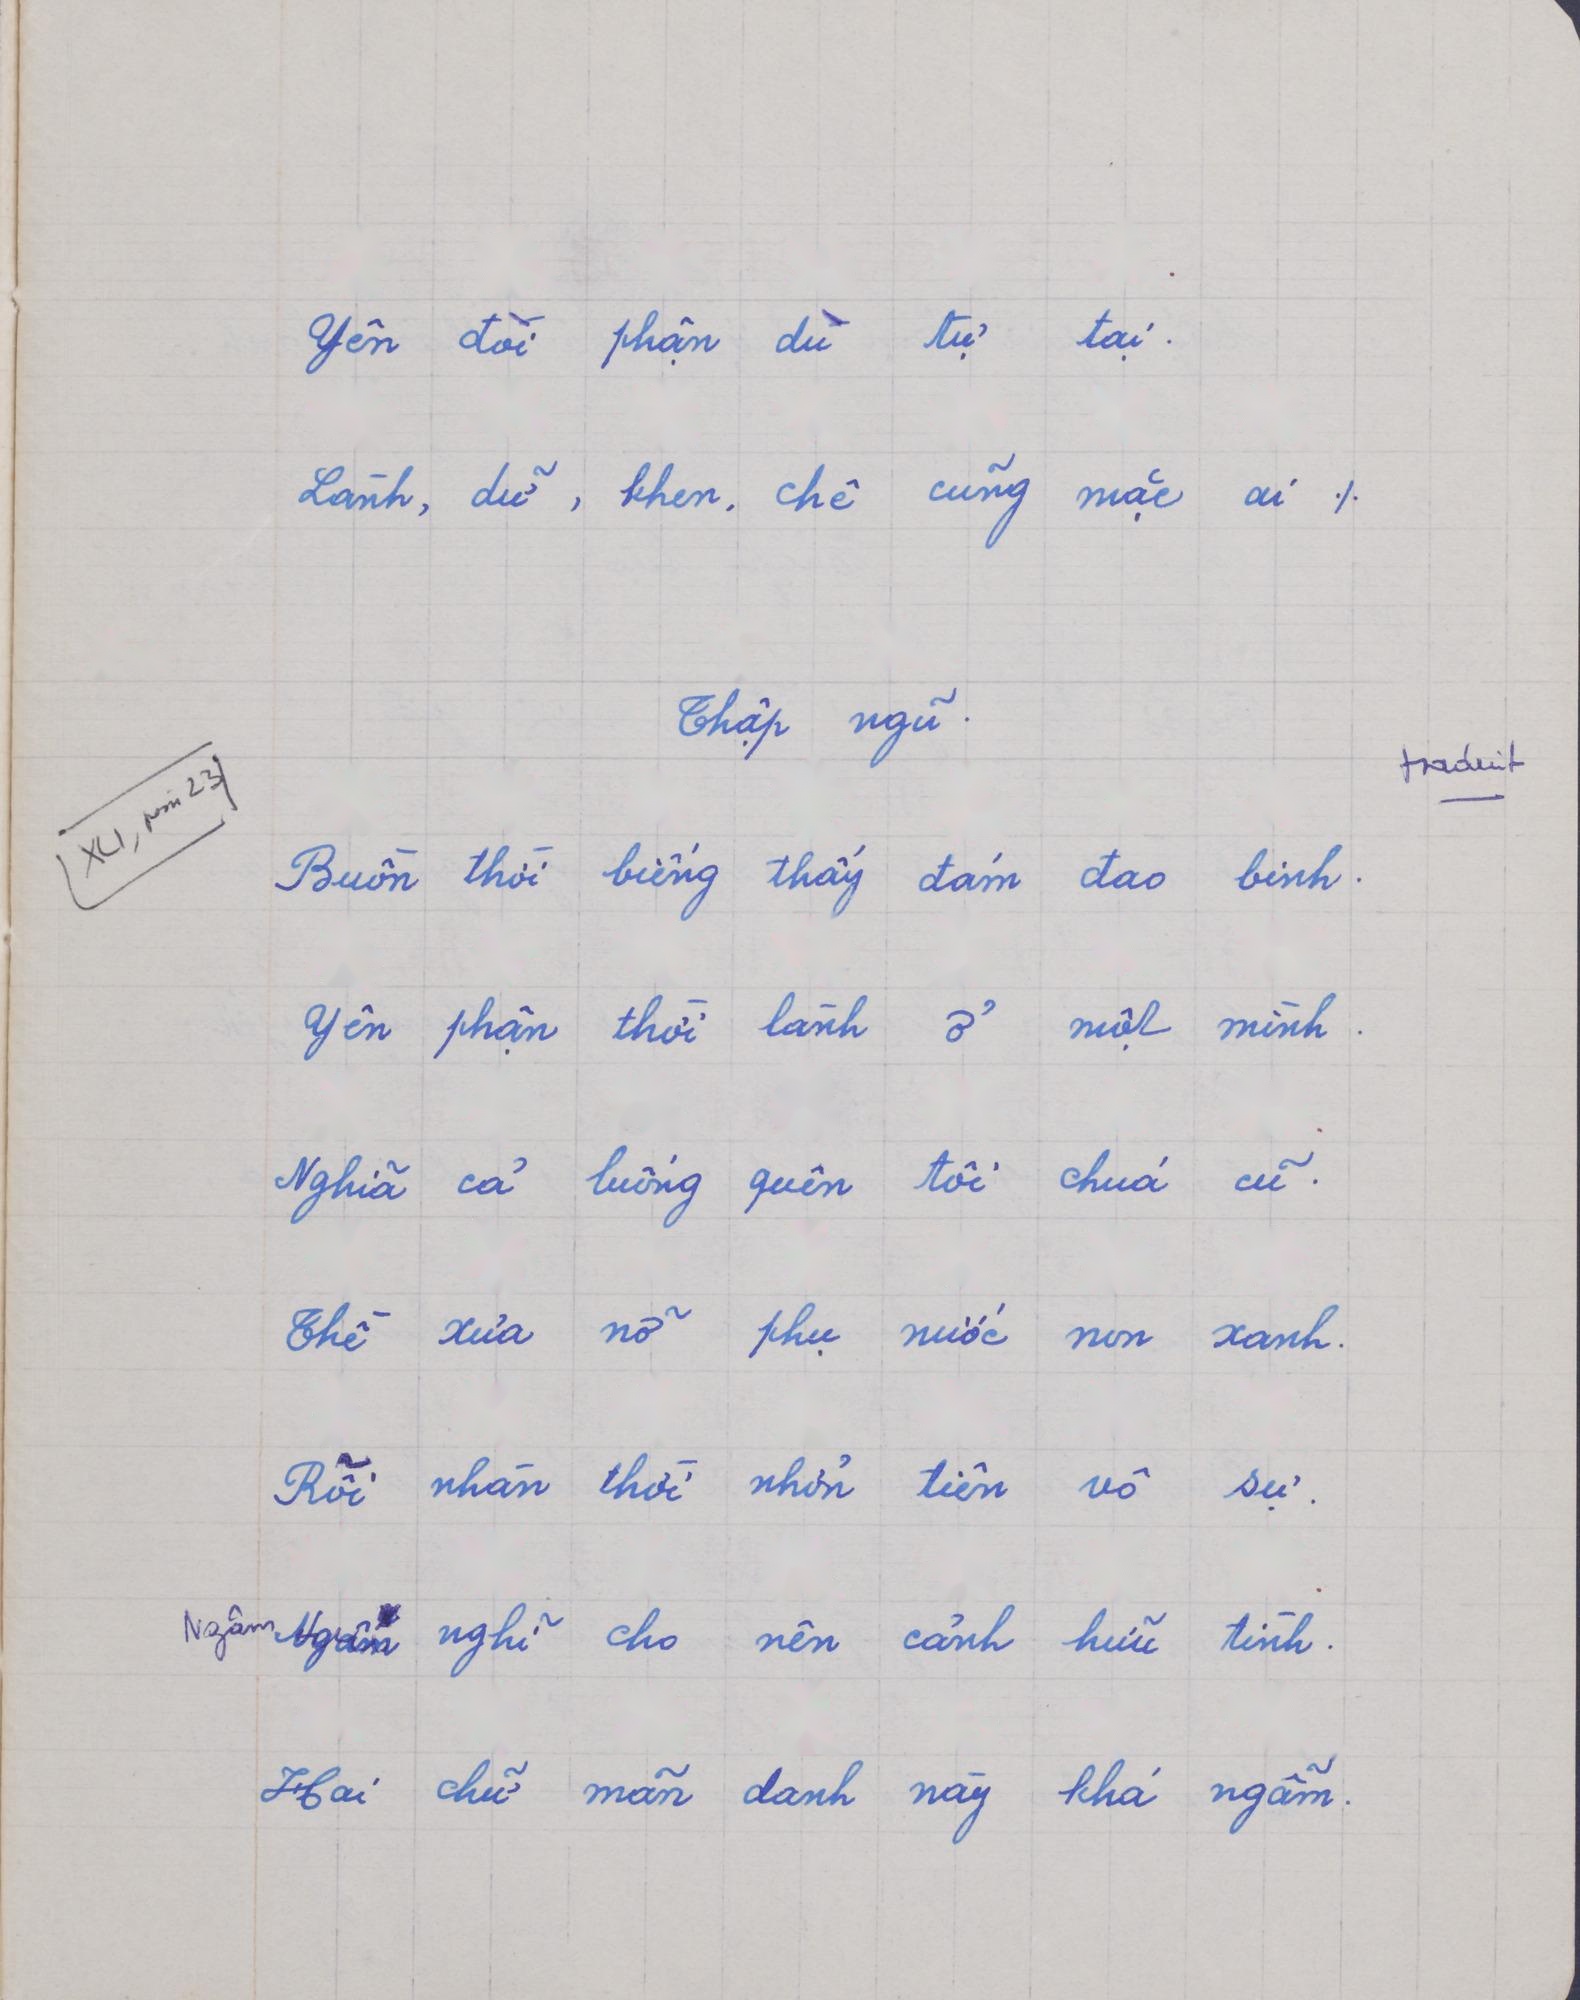 Yên đòi phận dù tự tại.
Lành, dữ, khen, chê cũng mặc ai ./.
Thập ngũ.
traduit
XLI,
Buồn thời biếng thấy đám đao binh.
Yên phận thời lành ở một mình.
Nghĩa cả luống quên tôi chúa cũ.
Thề xưa nỡ phụ nước non xanh.
Rỗi nhàn thời nhởn tiên vô sự.
Ngâm nghĩ cho nên cảnh hữu tình.
Hai chữ mãn danh này khá ngẫm.